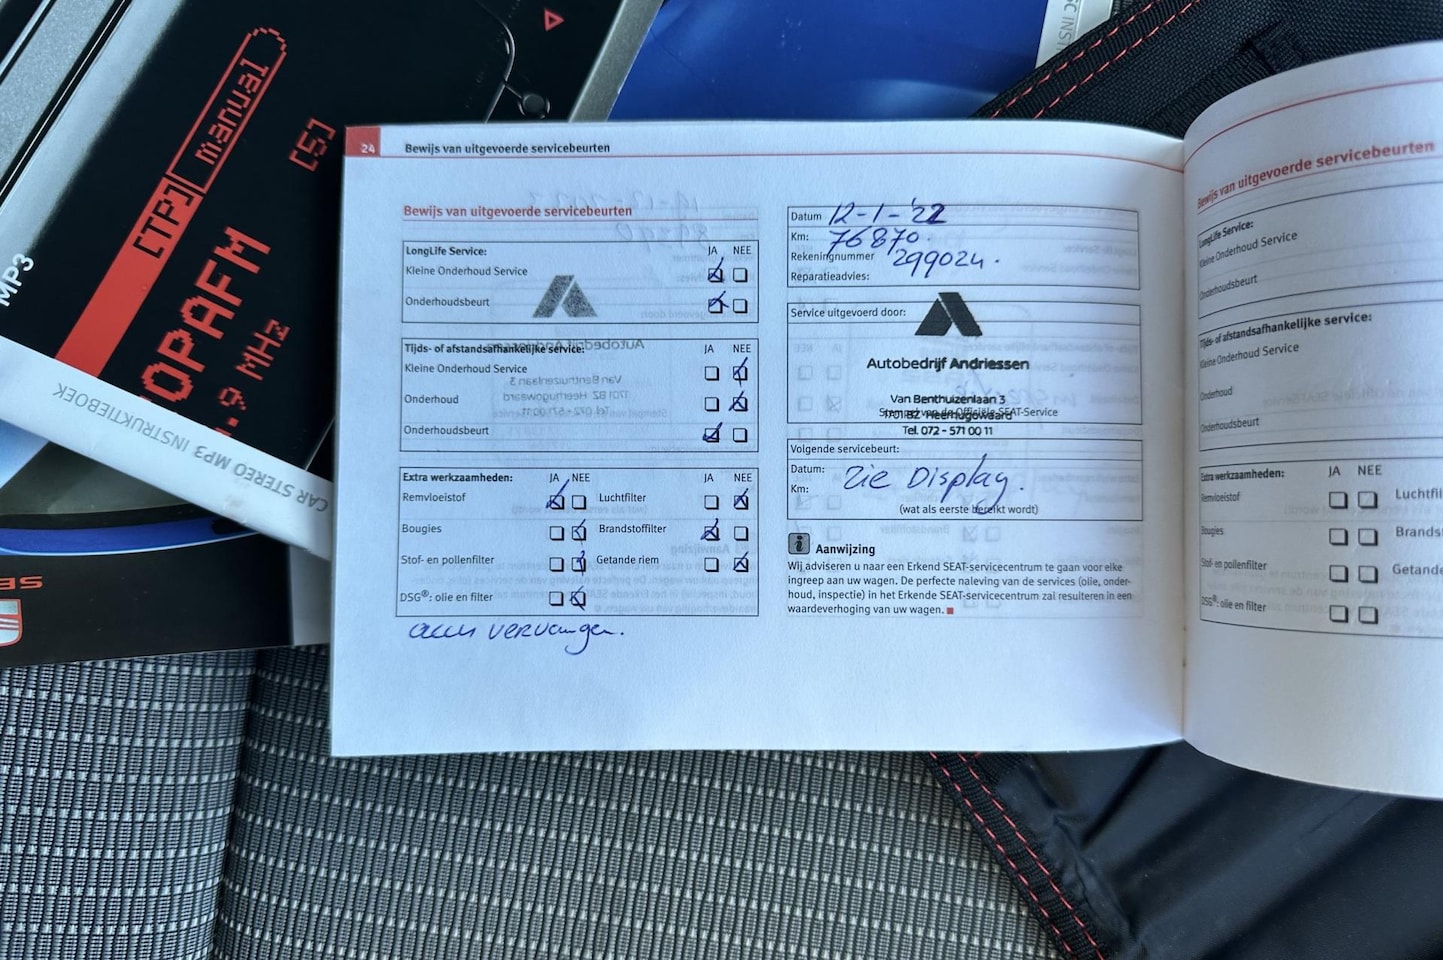 MP3
[TP]
manual
[5]
OPAFM
.9 MHz
CAR STEREO MP3 INSTRUKTIEBOEK
24 Bewijs van uitgevoerde servicebeurten
Bewijs van uitgevoerde servicebeurten
LongLife Service: JA NEE
Kleine Onderhoud Service
Onderhoudsbeurt
Tijds- of afstandsafhankelijke service: JA NEE
Kleine Onderhoud Service
Onderhoud
Onderhoudsbeurt
Extra werkzaamheden: JA NEE JA NEE
Remvloeistof Luchtfilter
Bougies Brandstoffilter
Stof- en pollenfilter Getande riem
DSG®: olie en filter
accu vervangen.
Datum 12-1-'22
Km: 76870.
Rekeningnummer 299024.
Reparatieadvies:
Service uitgevoerd door:
Autobedrijf Andriessen
Van Benthuizenlaan 3
Stempel van de Officiële SEAT-Service
1701 BZ Heerhugowaard
Tel. 072 - 571 00 11
Volgende servicebeurt:
Datum: Zie Display.
Km:
(wat als eerste bereikt wordt)
i Aanwijzing
Wij adviseren u naar een Erkend SEAT-servicecentrum te gaan voor elke
ingreep aan uw wagen. De perfecte naleving van de services (olie, onder-
houd, inspectie) in het Erkende SEAT-servicecentrum zal resulteren in een
waardeverhoging van uw wagen.
Bewijs van uitgevoerde servicebeurten
LongLife Service:
Kleine Onderhoud Service
Onderhoudsbeurt
Tijds- of afstandsafhankelijke service:
Kleine Onderhoud Service
Onderhoud
Onderhoudsbeurt
Extra werkzaamheden: JA NEE
Remvloeistof Luchtfil
Bougies Brands
Stof- en pollenfilter Getande
DSG®: olie en filter